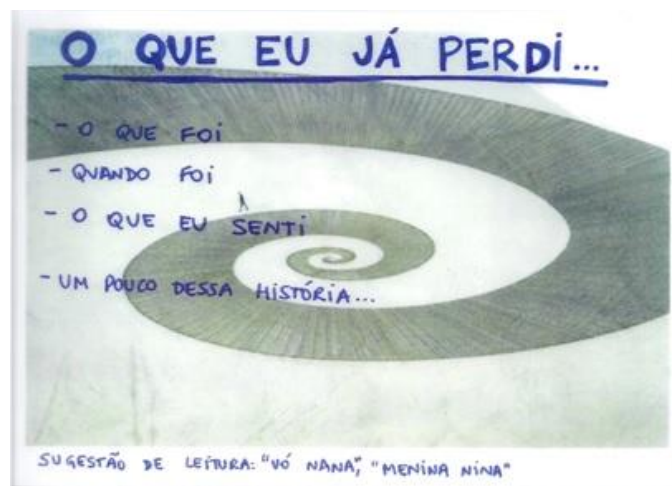 O QUE EU JÁ PERDI...
- O QUE FOI
- QUANDO FOI
- O QUE EU SENTI
- UM POUCO DESSA HISTÓRIA...
SUGESTÃO DE LEITURA: "VÓ NANA", "MENINA NINA"